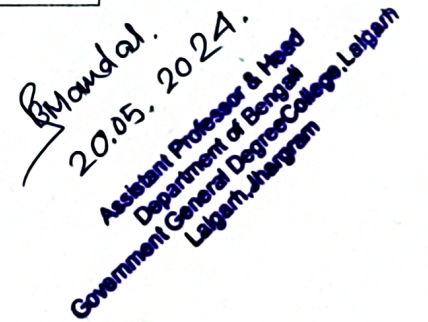 BMondal.
20.05.2024.
Assistant Professor & Head
Department of Bengali
Government General DegreeCollege, Lalgarh
Lalgarh, Jhargram